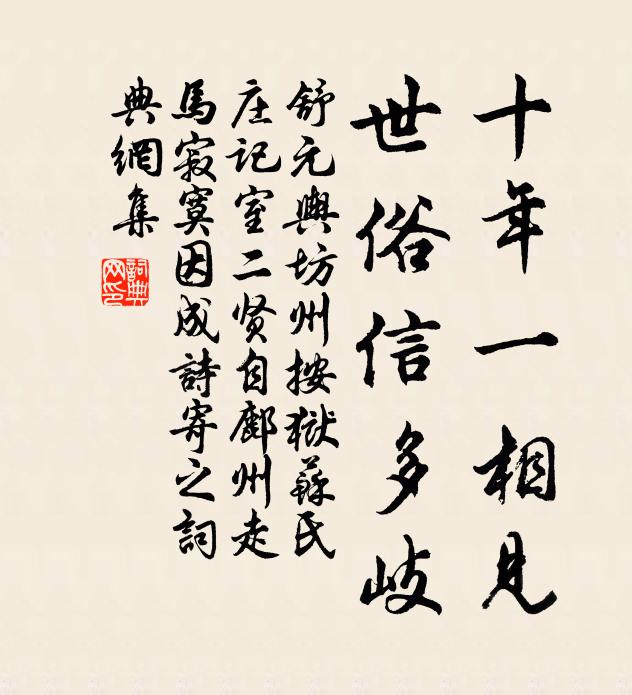 十年一相見
世俗信多岐
舒元輿坊州按獄蘇氏
庄記室二贤自鄜州走
馬寂寞因成詩寄之詞
典網集
詞典
网印